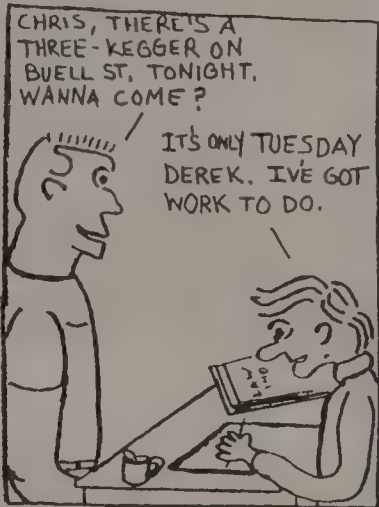 CHRIS, THERE'S A
THREE-KEGGER ON
BUELL ST. TONIGHT.
WANNA COME?
IT'S ONLY TUESDAY
DEREK. I'VE GOT
WORK TO DO.